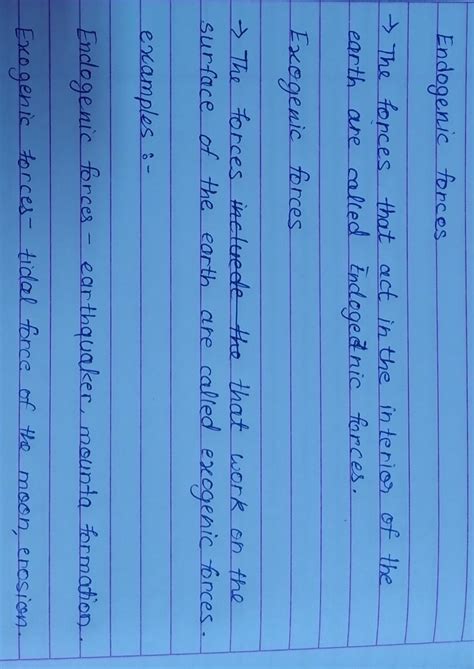 Endogenic forces
→ The forces that act in the interior of the
earth are called Endogednic forces.
Exogenic forces
→ The forces incluede the that work on the
surface of the earth are called exogenic forces.
examples :-
Endogenic forces - earthquaker, mounta formation.
Exogenic forces - tidal force of the moon, erosion.